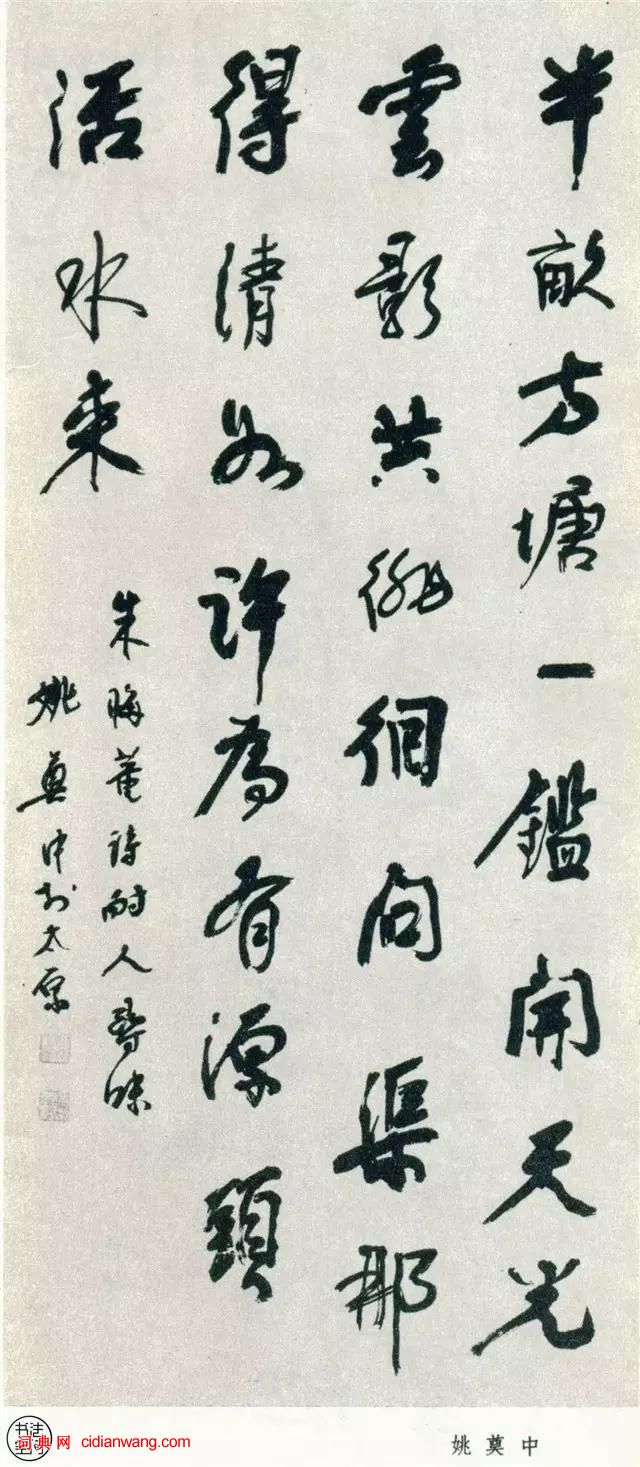 半畝方塘一鑑開天光
雲影共徘徊問渠那
得清如許為有源頭
活水來
朱晦菴詩耐人尋味
姚奠中於太原
词典网 cidianwang.com
姚奠中